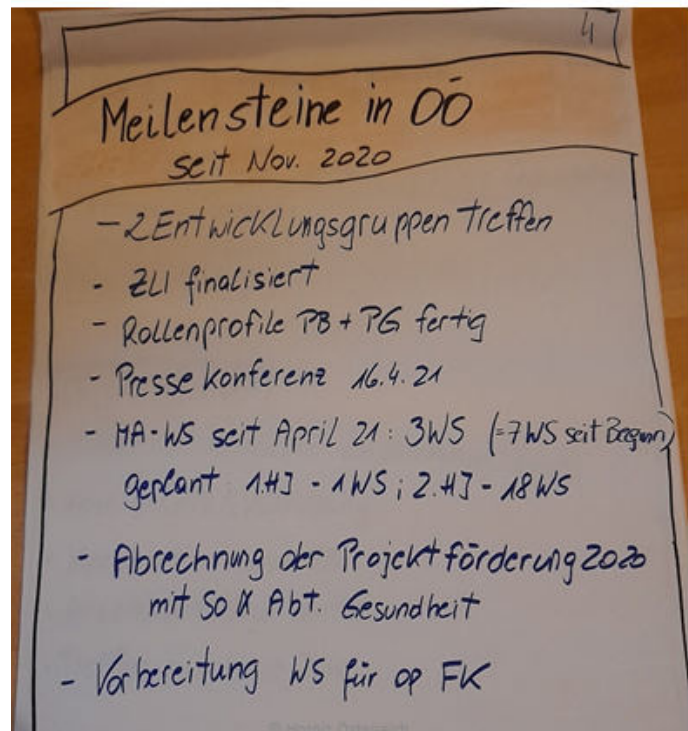 4
Meilensteine in OÖ
seit Nov. 2020
- 2 Entwicklungsgruppen treffen
- ZLI finalisiert
- Rollenprofile PB + PG fertig
- Pressekonferenz 16.4.21
- MA-WS seit April 21: 3WS (=7WS seit Beginn)
geplant 1.HJ - 1WS; 2.HJ - 18WS
- Abrechnung der Projektförderung 2020
mit So & Abt. Gesundheit
- Vorbereitung WS für op FK